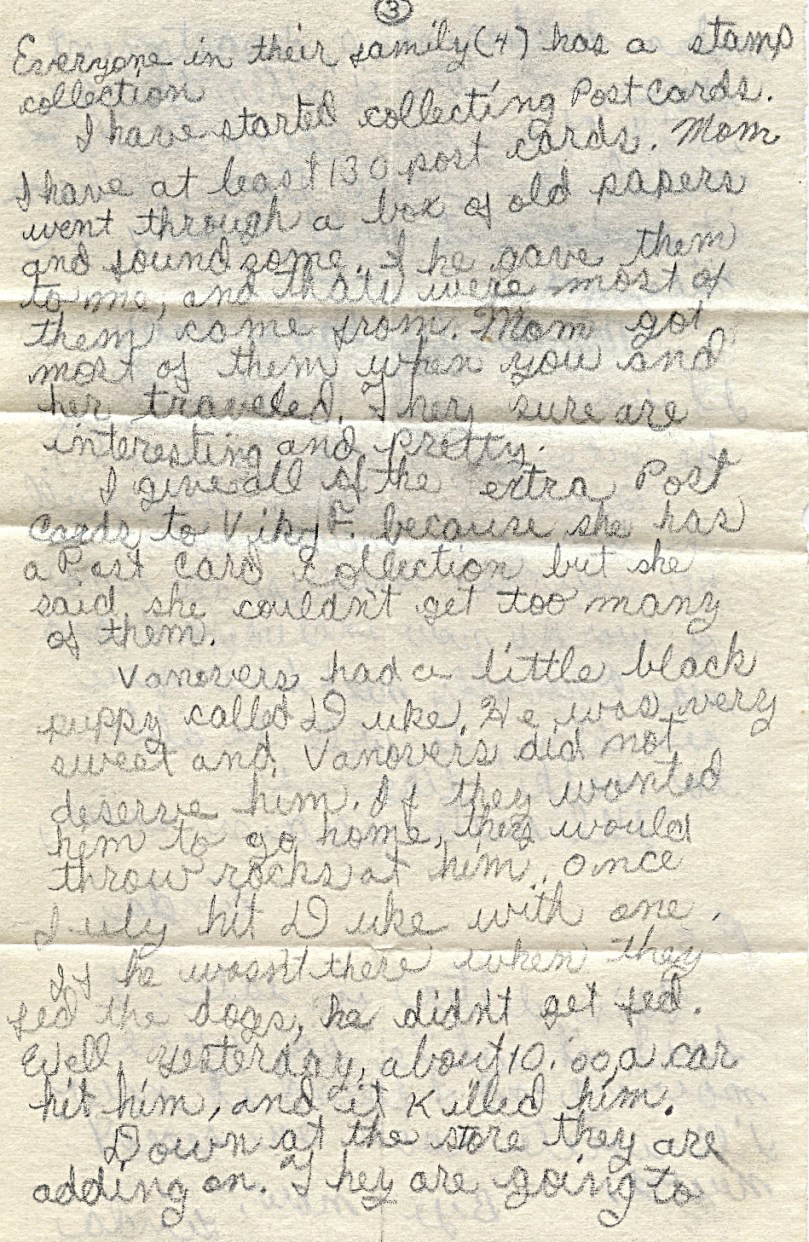 3
Everyone in their family (4) has a stamp
collection
I have started collecting Post Cards.
I have at least 130 post cards. Mom
went through a box of old papers
and found some. She gave them
to me, and that's were most of
them come from. Mom got
most of them when you and
her traveled. They sure are
interesting and pretty.
I give all of the extra Post
Cards to Viky F. because she has
a Post Card Collection but she
said she couldn't get too many
of them.
Vanovers had a little black
puppy called Duke. He was very
sweet and Vanovers did not
deserve him. If they wanted
him to go home, they would
throw rocks at him. Once
July hit Duke with one.
If he wasn't there when they
fed the dogs, he didn't get fed.
Well, yesterday, about 10:00, a car
hit him, and it Killed him.
Down at the store they are
adding on. They are going to